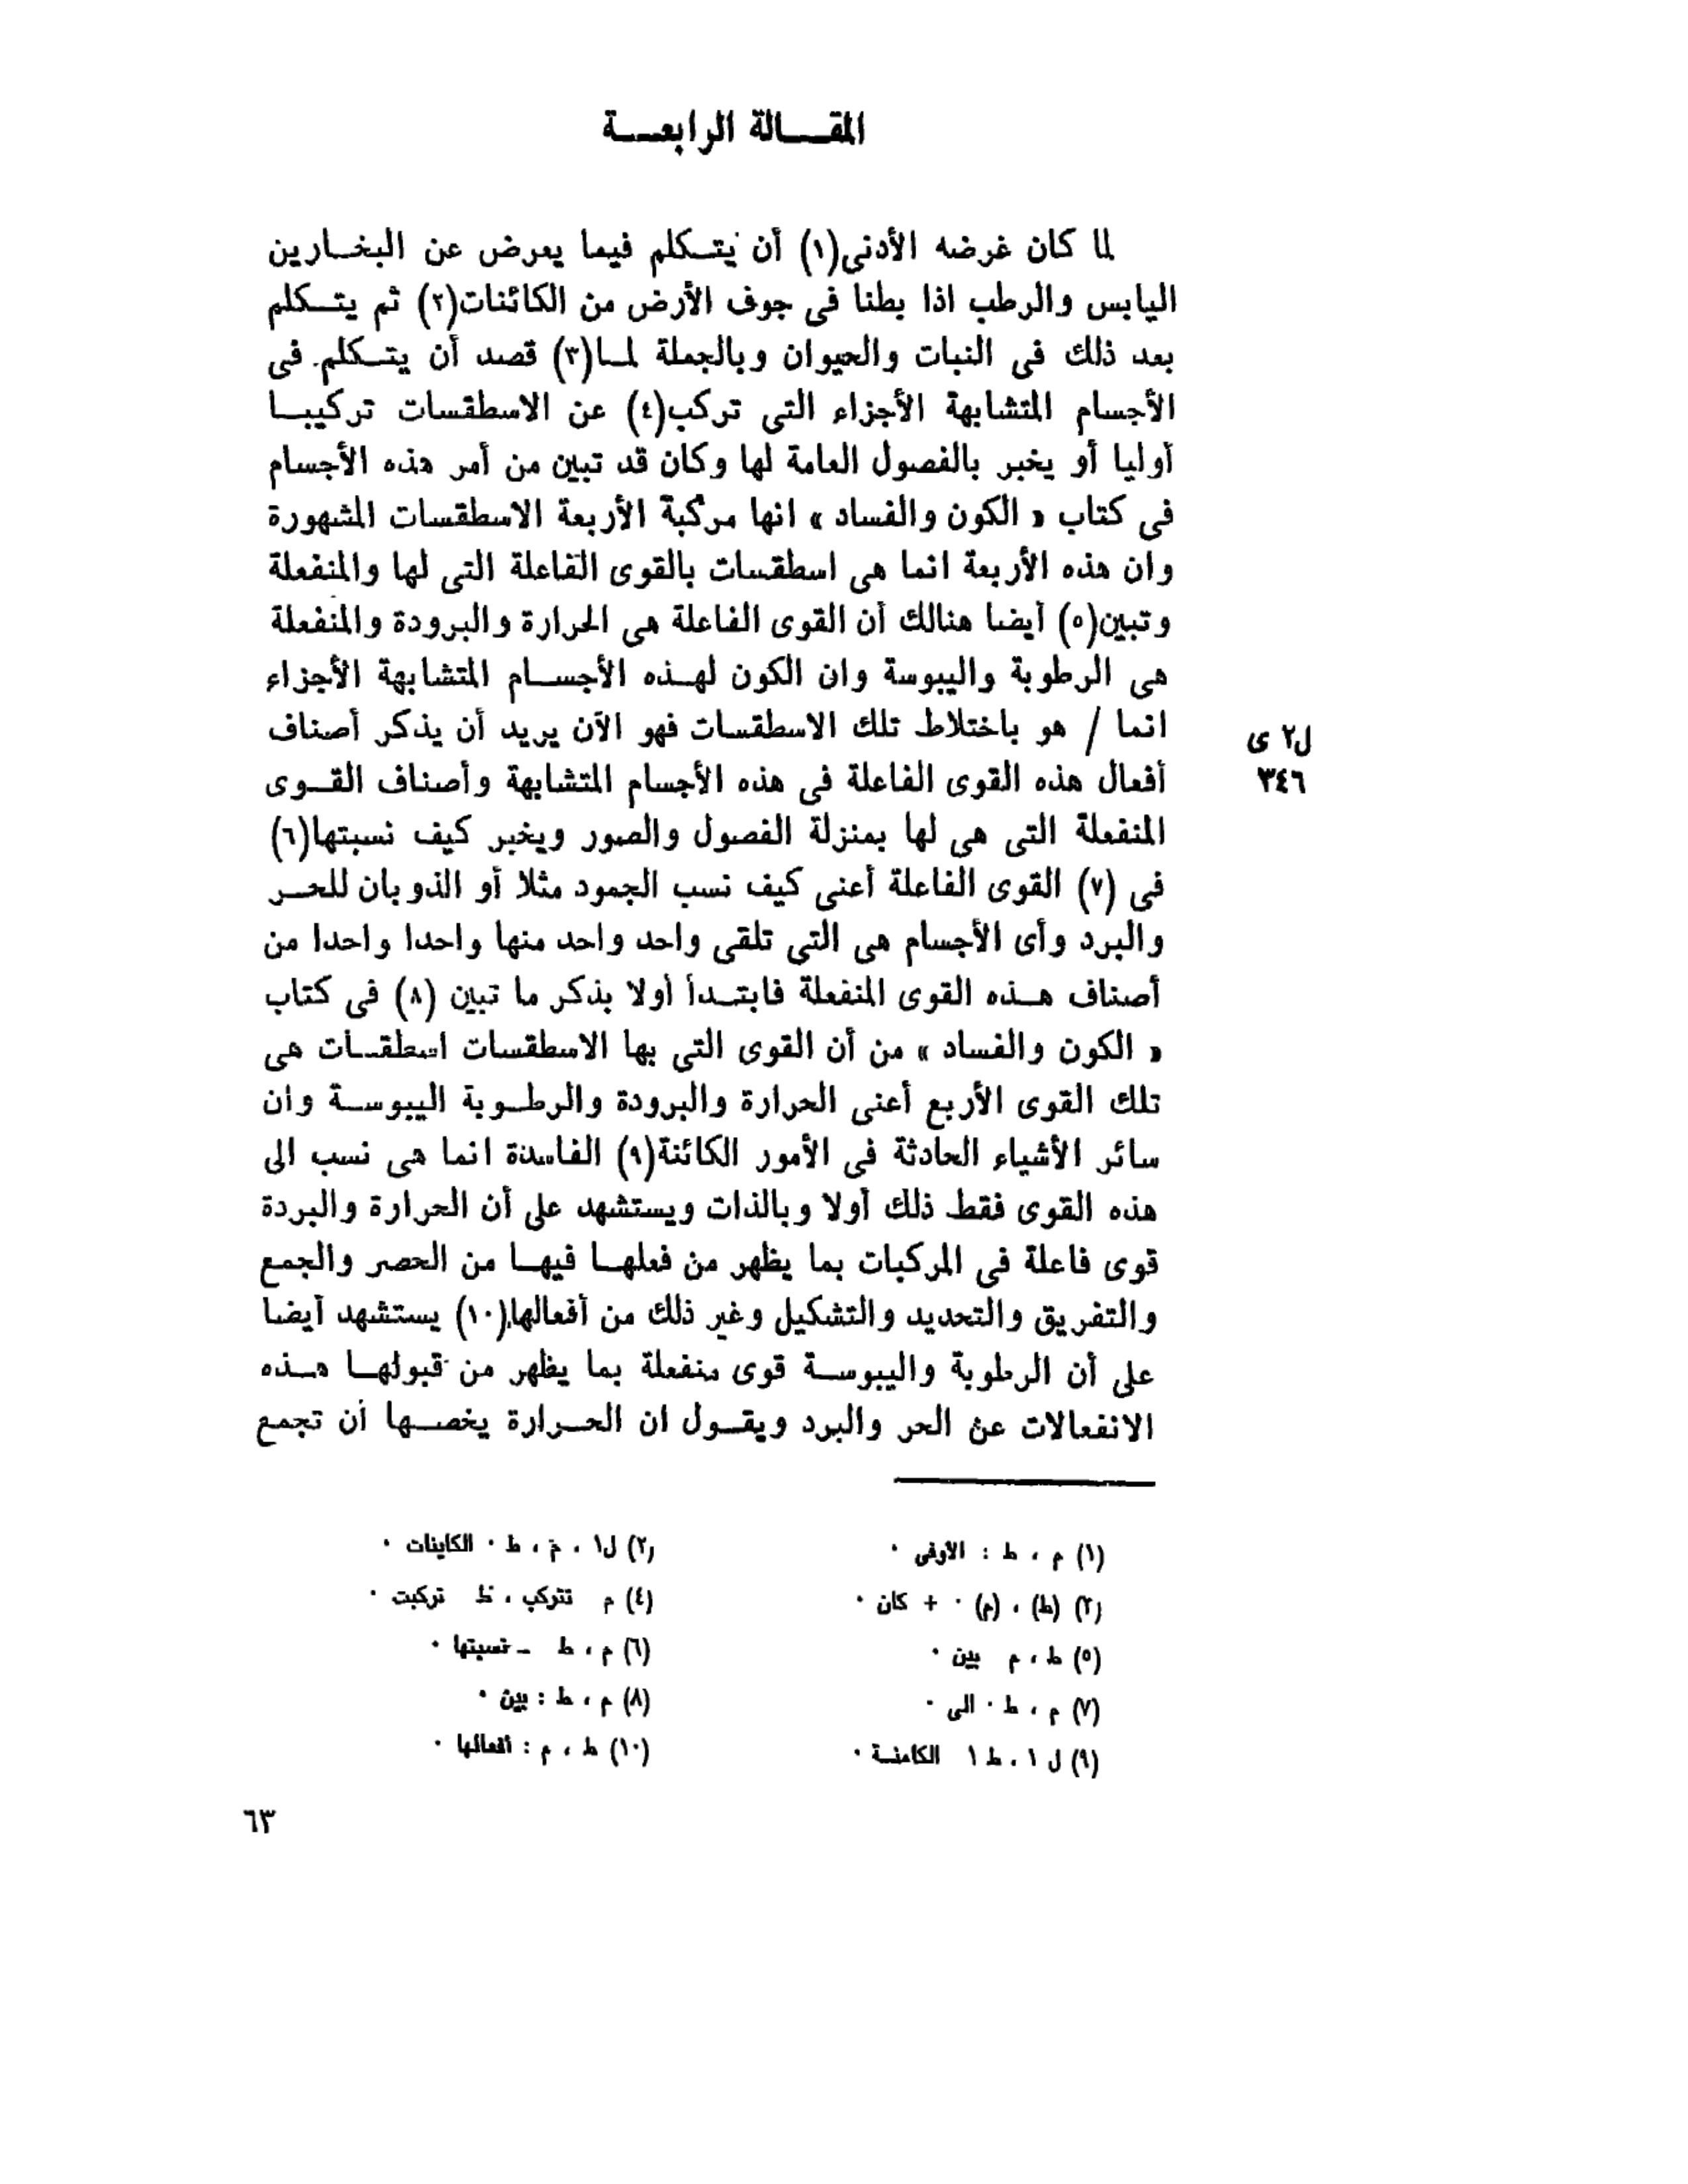 المقـــالة الرابعـــة
لما كان غرضه الأدنى(١) أن يتـكلم فيما يعرض عن البخـارين
اليابس والرطب اذا بطنا فى جوف الأرض من الكائنات(٢) ثم يتـكلم
بعد ذلك فى النبات والحيوان وبالجملة لـا(٣) قصد أن يتـكلم فى
الأجسام المتشابهة الأجزاء التى تركب(٤) عن الاسطقسات تركيبـا
أوليا أو يخبر بالفصول العامة لها وكان قد تبين من أمر هذه الأجسام
فى كتاب « الكون والفساد » انها مركبة الأربعة الاسطقسات المشهورة
وان هذه الأربعة انما هى اسطقسات بالقوى الفاعلة التى لها والمنفعلة
وتبين(٥) أيضا هنالك أن القوى الفاعلة هى الحرارة والبرودة والمنفعلة
هى الرطوبة واليبوسة وان الكون لهـذه الأجسـام المتشابهة الأجزاء
انما / هو باختلاط تلك الاسطقسات فهو الآن يريد أن يذكر أصناف
ل٢ ى
أفعال هذه القوى الفاعلة فى هذه الأجسام المتشابهة وأصناف القـوى
٣٤٦
المنفعلة التى هى لها بمنزلة الفصول والصور ويخبر كيف نسبتها(٦)
فى (٧) القوى الفاعلة أعنى كيف نسب الجمود مثلا أو الذوبان للحـر
والبرد وأى الأجسام هى التى تلقى واحد واحد منها واحدا واحدا من
أصناف هـذه القوى المنفعلة فابتـدأ أولا بذكر ما تبين (٨) فى كتاب
« الكون والفساد » من أن القوى التى بها الاسطقسات اسطقسات هى
تلك القوى الأربع أعنى الحرارة والبرودة والرطـوبة اليبوسـة وان
سائر الأشياء الحادثة فى الأمور الكائنة(٩) الفاسدة انما هى نسب الى
هذه القوى فقط ذلك أولا وبالذات ويستشهد على أن الحرارة والبردة
قوى فاعلة فى المركبات بما يظهر من فعلهـا فيهـا من الحصر والجمع
والتفريق والتحديد والتشكيل وغير ذلك من أفعالها(١٠) يستشهد أيضا
على أن الرطوبة واليبوسـة قوى منفعلة بما يظهر من قبولهـا هـذه
الانفعالات عن الحر والبرد ويقـول ان الحـرارة يخصـها أن تجمع
(١) م ، ط : الاوفى ٠
(٢) ل١ ، م ، ط ٠ الكاينات ٠
(٣) (ط) ، (م) ٠ + كان ٠
(٤) م تتركب ، ط تركبت ٠
(٥) ط ، م بين ٠
(٦) م ، ط ــ نسبتها ٠
(٧) م ، ط ٠ الى ٠
(٨) م ، ط : بين ٠
(٩) ل ١ ، ط ١ الكامنـة ٠
(١٠) ط ، م : أفعالها ٠
٦٣